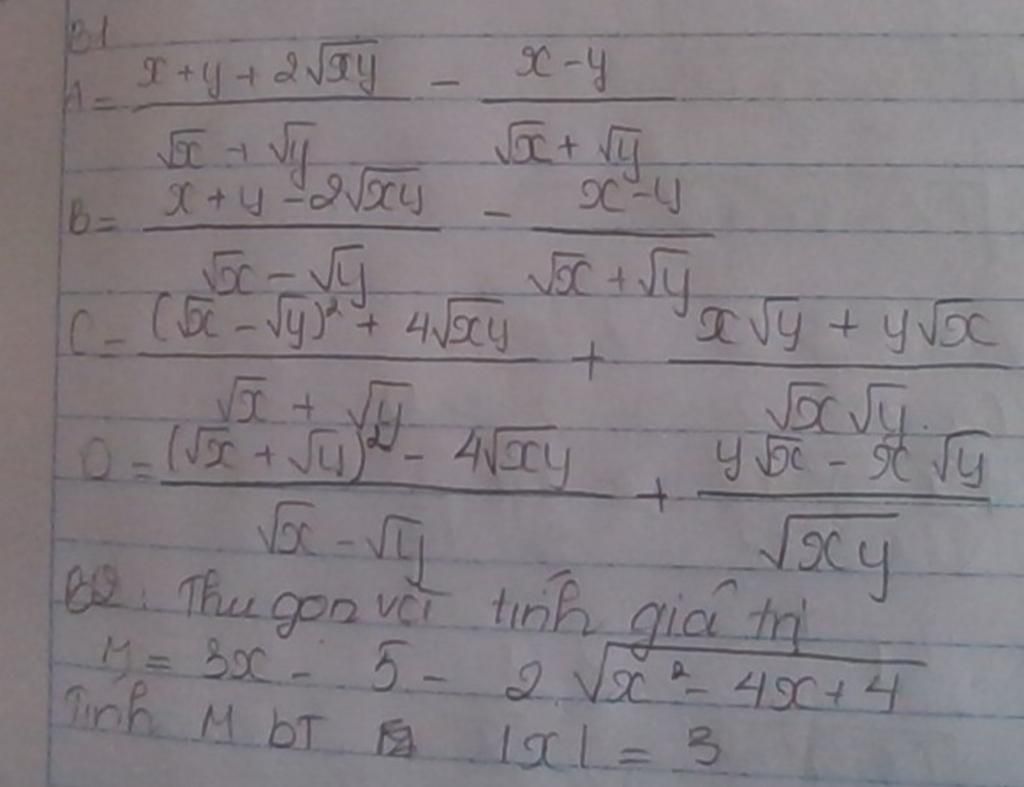 B1
A = (x + y + 2√xy) / (√x + √y) - (x - y) / (√x + √y)
B = (x + y - 2√xy) / (√x - √y) - (x - y) / (√x + √y)
C = ((√x - √y)² + 4√xy) / (√x + √y) + (x√y + y√x) / (√x√y)
D = ((√x + √y)² - 4√xy) / (√x - √y) + (y√x - x√y) / √xy
B2: Thu gọn với tính giá trị
M = 3x - 5 - 2√x² - 4x + 4
Tính M bT |x| = 3